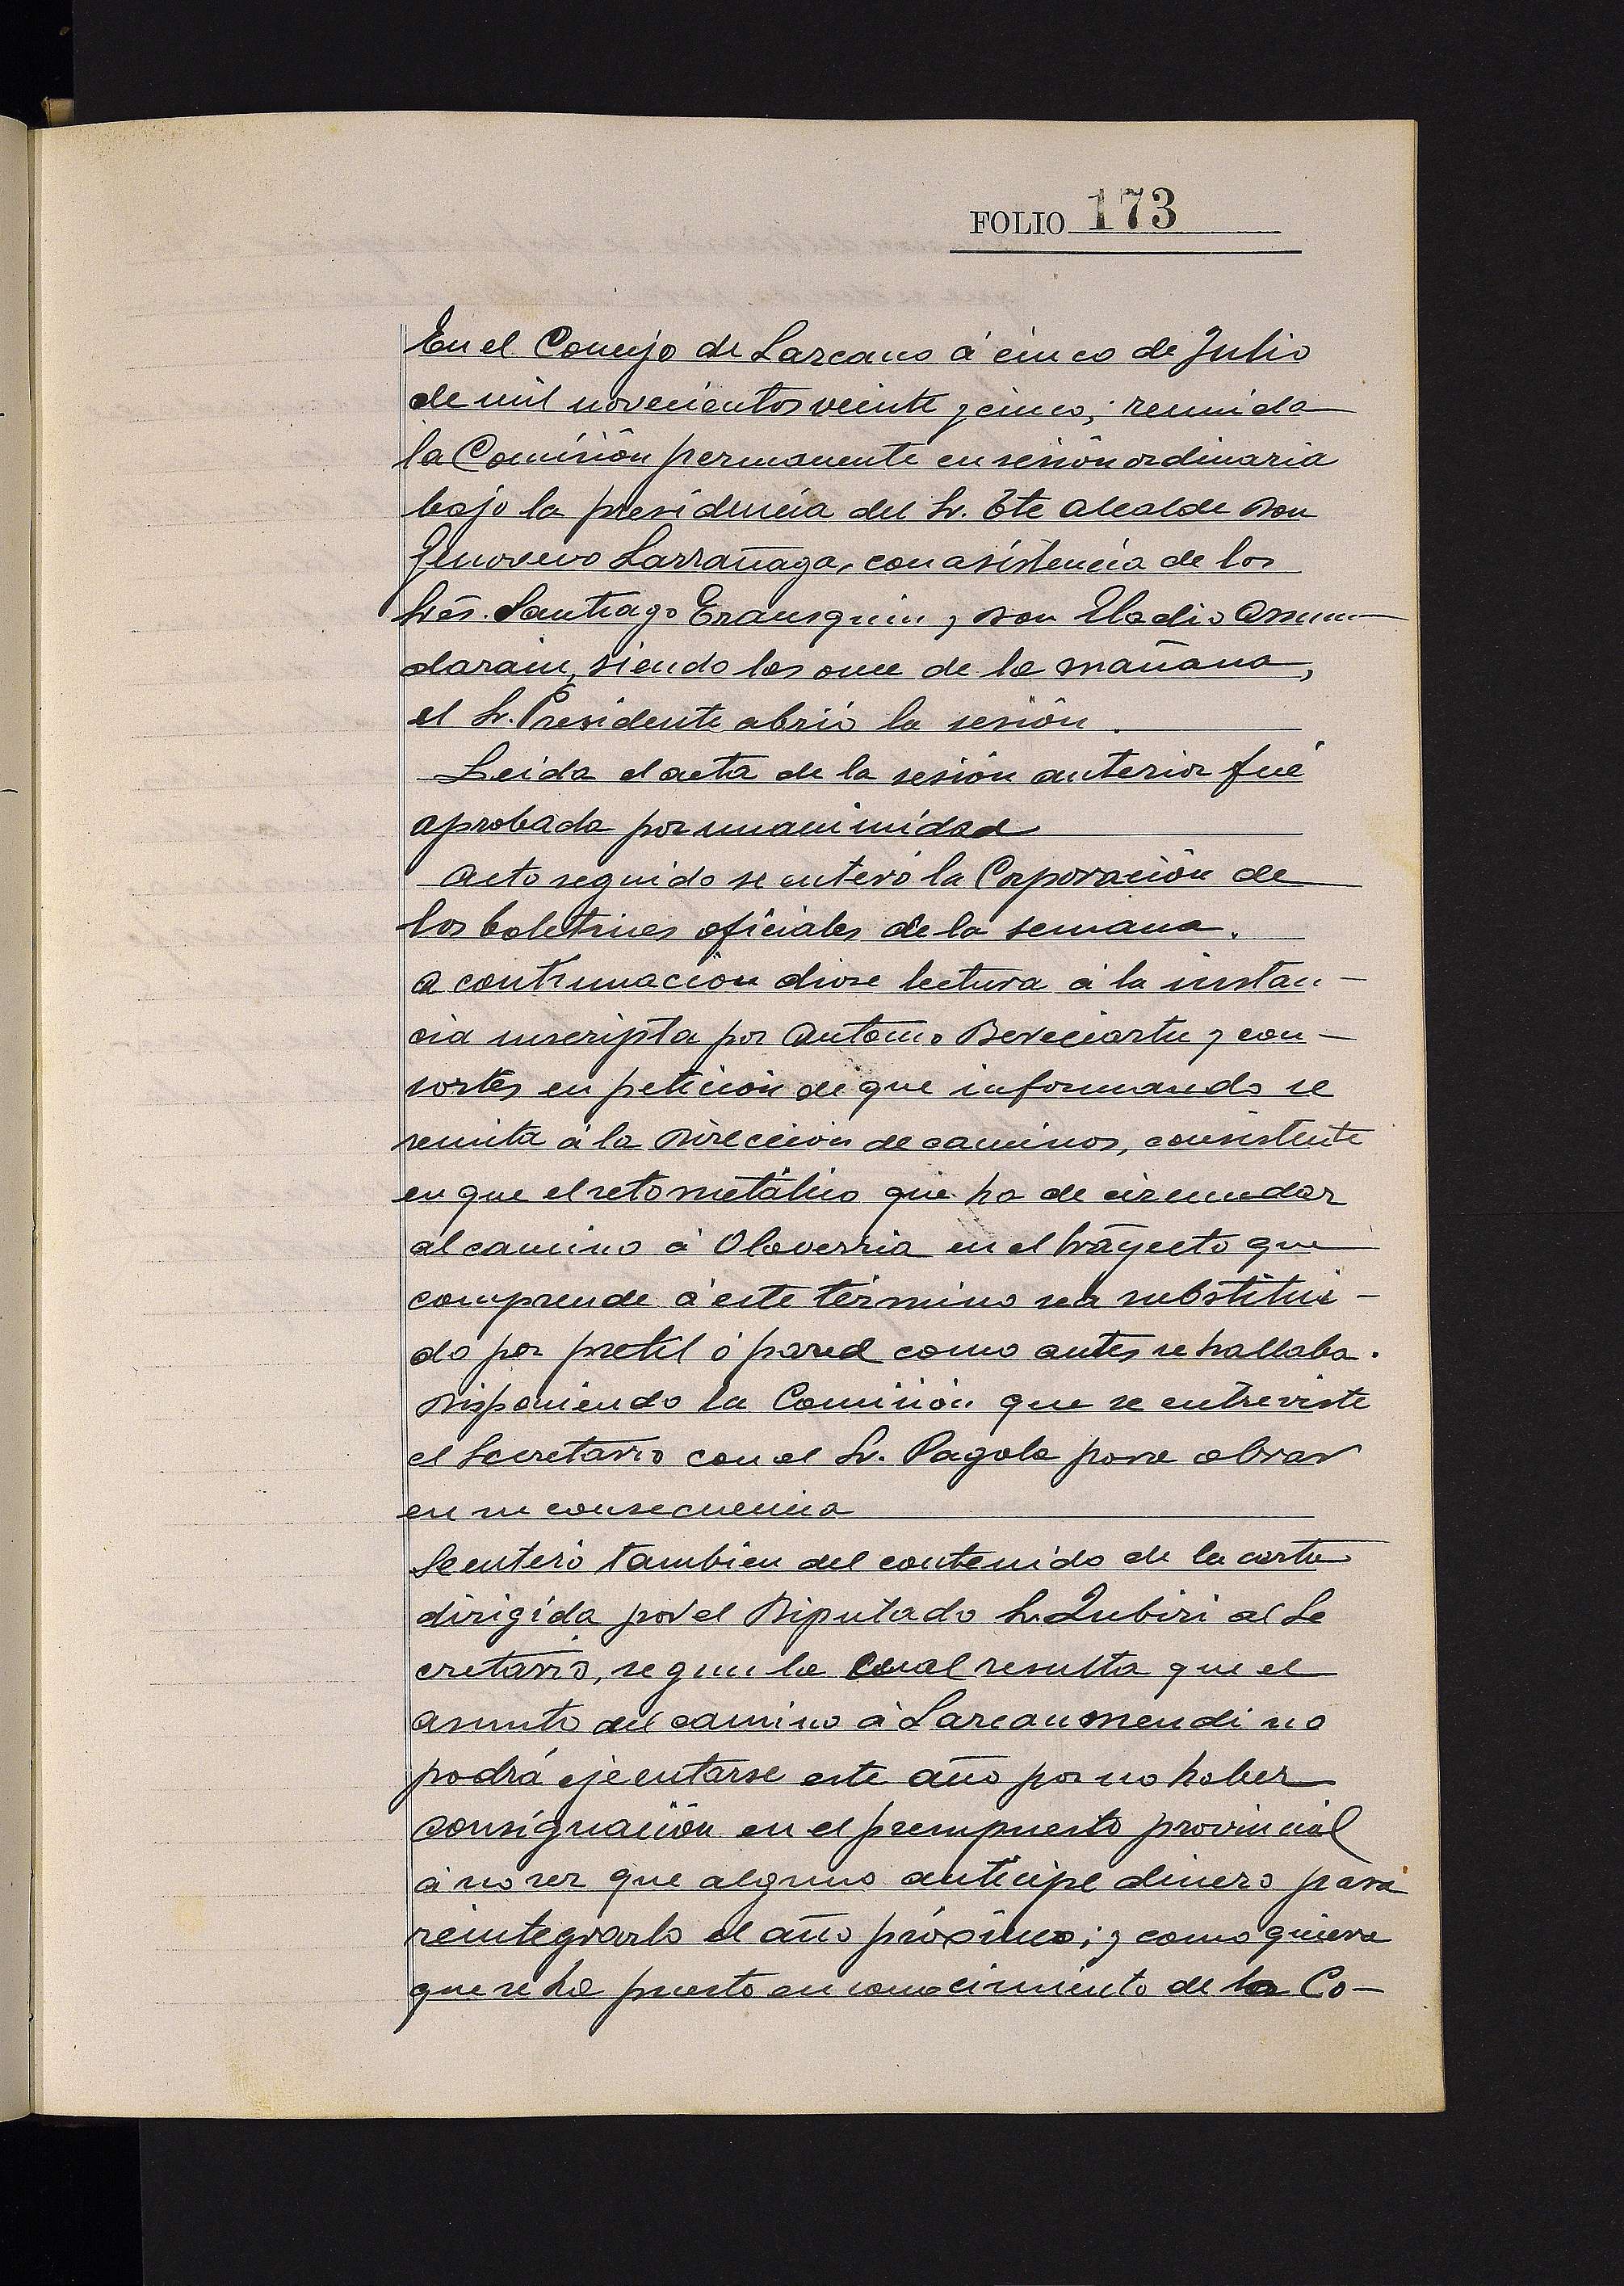 FOLIO 173
En el Concejo de Lazcano á cinco de Julio
de mil novecientos veinte y cinco; reunida
la Comisión permanente en sesión ordinaria
bajo la presidencia del Sr. Tte Alcalde Don
Genovevo Larrañaga, con asistencia de los
Srés. Santiago Erausquin y Don Eladio Asun-
darain, siendo las once de la mañana,
el Sr. Presidente abrió la sesión.
Leida el acta de la sesión anterior fué
aprobada por unanimidad
Acto seguido se enteró la Corporación de
los boletines oficiales de la semana.
A continuación diose lectura á la instan-
cia suscripta por Antonio Bereciartu y con-
sortes en petición de que informando se
remita á la Dirección de caminos, consistente
en que el seto metálico que ha de circundar
al camino á Olaverria en el trayecto que
comprende á este término sea substitui-
do por pretil ó pared como antes se hallaba.
Disponiendo la Comisión que se entreviste
el Secretario con el Sr. Pagola para obrar
en su consecuencia
Se enteró tambien del contenido de la carta
dirigida por el Diputado Sr. Zubiri al Se
cretario, segun la cual resulta que el
asunto del camino á Lazcaumendi no
podrá ejecutarse este año por no haber
consignación en el presupuesto provincial
á no ser que alguno anticipe dinero para
reintegrarlo el año próximo; y como quiera
que se ha puesto en conocimiento de la Co-